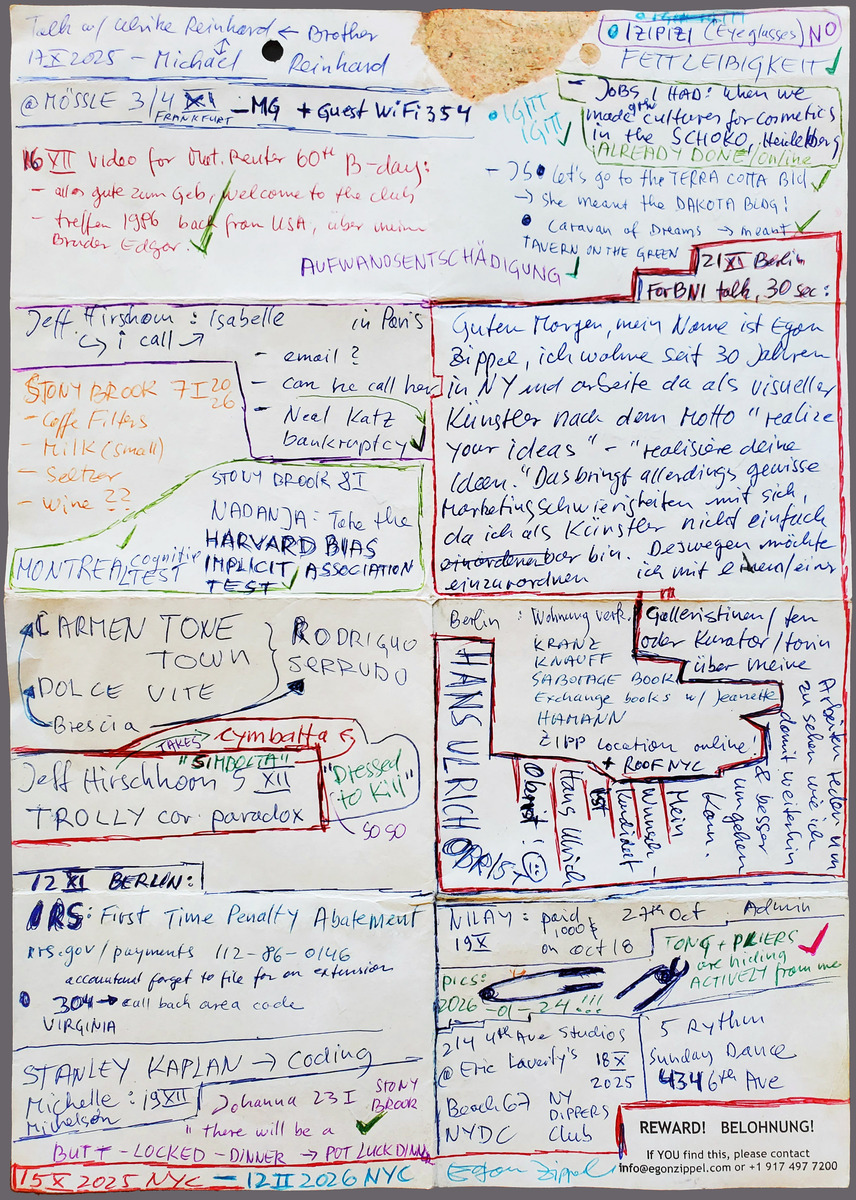 Talk w/ Ulrike Reinhard ← Brother
17 X 2025 – Michael Reinhard
@ MÖSSLE 3/4 XI – MG + Guest WiFi 354
FRANKFURT
16 XII Video for Mot. Reuter 60th B-day:
– alles gute zum Geb, welcome to the club
– treffen 1986 back from USA, über meinen
Bruder Edgar.
AUFWANDSENTSCHÄDIGUNG
IZIPIZI (Eyeglasses) NO
FETTLEIBIGKEIT
– JOBS I HAD: when we
made grw cultures for cosmetics
in the SCHOKO, Heidelberg
ALREADY DONE/online
IGITT
IGITT
– JS Let's go to the TERRA COTTA Bld
→ she meant the DAKOTA BLDG!
Caravan of Dreams → meant
TAVERN ON THE GREEN
21 XI Berlin
For BNI talk, 30 sec:
Guten Morgen, mein Name ist Egon
Zippel, ich wohne seit 30 Jahren
in NY und arbeite da als visueller
Künstler nach dem Motto "realize
your ideas" – "realisiere deine
Ideen." Das bringt allerdings gewisse
Marketingschwierigkeiten mit sich,
da ich als Künstler nicht einfach
einordenbar bin. Deswegen möchte
einzuordnen ich mit einem/einer
Galleristinen/ten
oder Kurator/torin
über meine
Arbeiten reden um
zu sehen wie ich
damit weiterhin
& besser
umgehen
kann.
Mein
Wunsch-
kandidat
ist
Hans Ulrich
Obrist!
HANS ULRICH OBRIST
Jeff Hirshorn : Isabelle in Paris
↳ i call
– email ?
– can he call her
– Neal Katz
bankruptcy
STONY BROOK 7 I 2026
– Coffe Filters
– Milk (small)
– Seltzer
– wine ??
STONY BROOK 8 I
NADANJA: Take the
HARVARD BIAS
IMPLICIT ASSOCIATION
TEST
MONTREAL cognitive
TEST
CARMEN TONE
TOWN
DOLCE VITE
Brescia
RODRIGUO
SERRUDO
TAKES cymbalta
"SIMBOLTA"
"Dressed
to Kill"
SO SO
Jeff Hirschhorn 5 XII
TROLLY car paradox
Berlin : Wohnung verk.
KRANZ
KNAUFF
SABOTAGE BOOK
Exchange books w/ Jeanette
HAMANN
ZIPP location online!
+ ROOF NYC
12 XI BERLIN:
IRS: First Time Penalty Abatement
irs.gov/payments 112-86-0146
accountant forget to file for an extension
304 → call back area code
VIRGINIA
STANLEY KAPLAN → coding
Michelle : 19 XII
Michelson
Johanna 23 I STONY
BROOK
"there will be a
BUTT – LOCKED – DINNER → POT LUCK DINNER
15 X 2025 NYC – 12 II 2026 NYC
NILAY : paid 27th Oct Admin
19 X 1000 $
on oct 18
TONG + PLIERS
are hiding
ACTIVELY from me
PICS:
2026 –01–24 !!!
214 4th Ave Studios
@ Eric Laverty's 18 X
2025
Beach 67 NY
DIPPERS
NYDC Club
5 Rythm
Sunday Dance
434 6th Ave
Egon Zippel
REWARD! BELOHNUNG!
If YOU find this, please contact
info@egonzippel.com or +1 917 497 7200